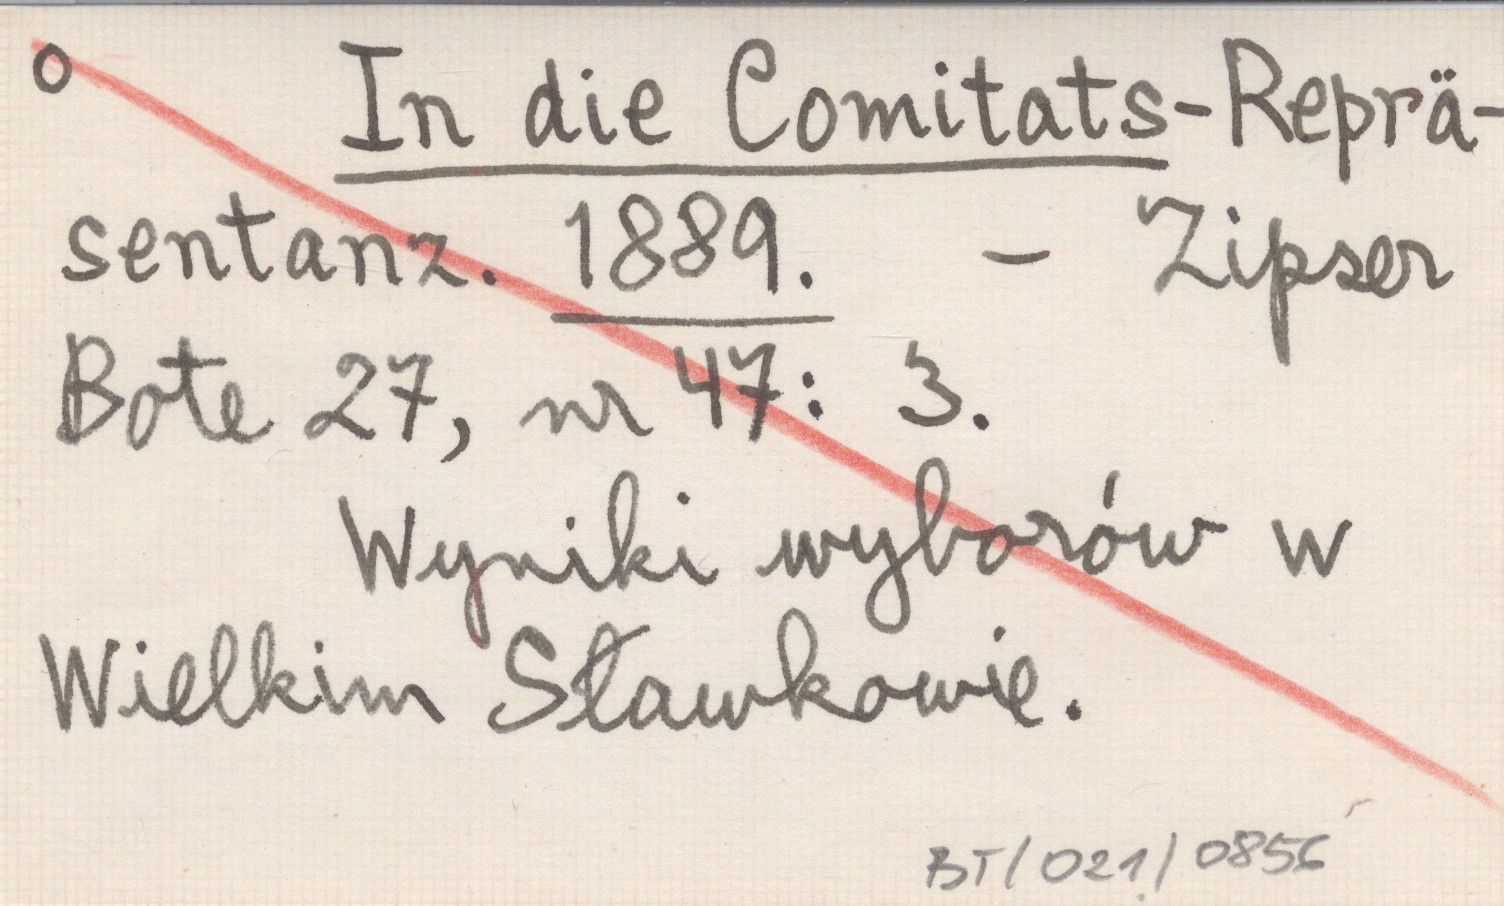 o In die Comitats-Reprä-
sentanz. 1889. - Zipser
Bote 27, nr 47: 3.
Wyniki wyborów w
Wielkim Sławkowie.
BT/021/0856